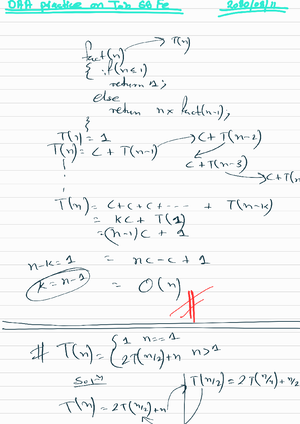 DAA practice on
fact(n) → T(n)
{ if(n≤1)
return 1;
else
return n × fact(n-1);
}
T(1) = 1
T(n) = C + T(n-1) → C + T(n-2)
C + T(n-3)
→ C + T(n
T(n) = C + C + C + ---- + T(n-k)
= KC + T(1)
= (n-1)C + 1
n-k=1 = nC - C + 1
k = n-1 = O(n)
# T(n) = { 1 n==1
2T(n/2)+n n>1
T(n/2) = 2T(n/4) + n/2
T(n) = 2T(n/2)+n